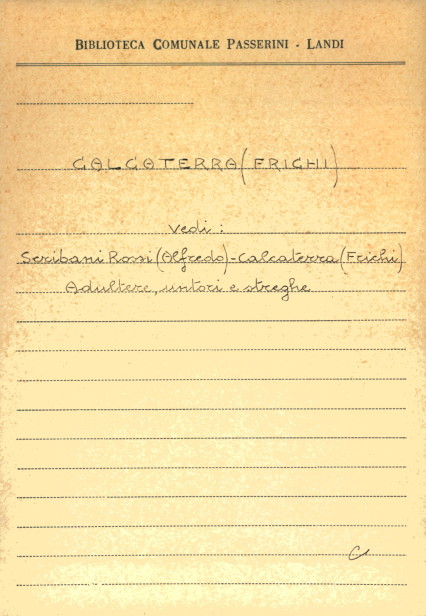 BIBLIOTECA COMUNALE PASSERINI - LANDI
CALCATERRA (FRICHI)
Vedi:
Scribani Rossi (Alfredo) - Calcaterra (Frichi)
Adultere, untori e streghe
C